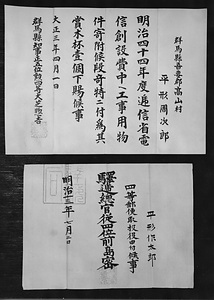 群馬縣吾妻郡高山村
平形周次郎
明治四十四年度逓信省電
信創設費中ヘ工事用物
件寄附候段奇特ニ付為其
賞木杯壹個下賜候事
大正三年四月一日
群馬縣知事正五位勲四等大芝惣吉
平形作太郎
四等郵便取扱役申付候事
驛逓總官従四位前島密
明治三年七月一日